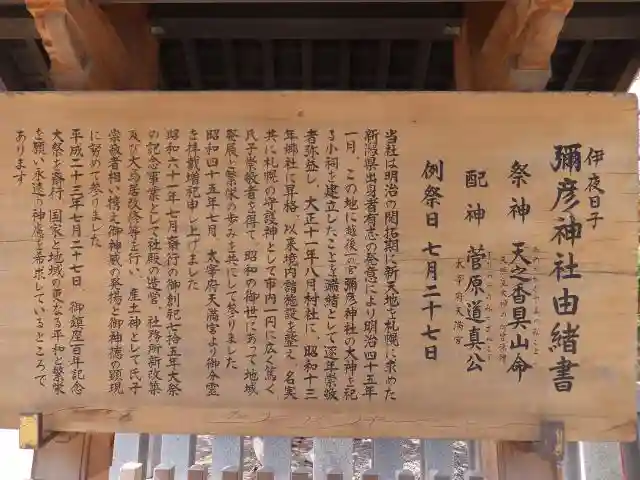 伊夜日子
彌彦神社由緒書
祭神　天之香具山命
配神　菅原道真公
太宰府天満宮
例祭日　七月二十七日
当社は明治の開拓期に新天地を札幌に求めた
新潟県出身者有志の発意により明治四十五年
一月、この地に越後一の宮彌彦神社の大神を祀
る小祠を建立したことを端緒として逐年崇敬
者弥益し、大正十一年八月村社に、昭和十三
年郷社に昇格、以来境内諸施設を整え、名実
共に札幌の守護神として市内一円に広く篤く
氏子崇敬者を得て、昭和の御世にあって地域
発展と繁栄の歩みを共にして参りました
昭和四十五年七月、太宰府天満宮より御分霊
を拝戴増祀申し上げました
昭和六十一年七月斎行の御創祀七拾五年大祭
の記念事業として社殿の造営、社務所新改築
及び大鳥居改修等を行い、産土神として氏子
崇敬者相い携え御神威の発揚と御神徳の顕現
に努めて参りました
平成二十三年七月二十七日　御鎮座百年記念
大祭を斎行、国家と地域の更なる平和と繁栄
を願い永遠の神慮を希求しているところで
あります